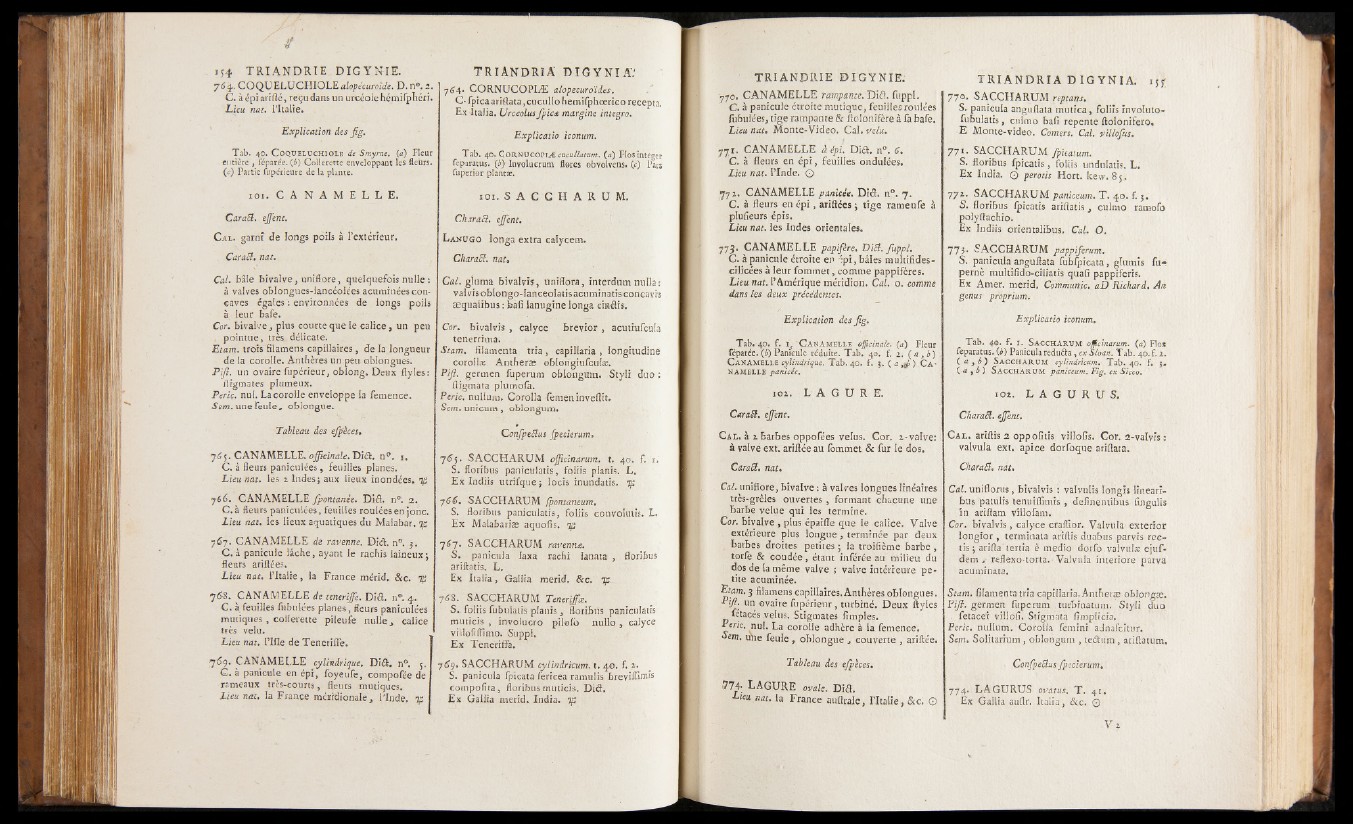 154 TRIANDRIE DIGYNIE.
764. COQUELUCHIOLE alopécuroide. D. nº. 2.
C. à épi ariſté, reçu dans un urcéole hémiſphéri.
Lieu nat. l'Italie.
Explication des fig.
Tab. 40. COQUELUCHIOLE de Smyrne. (a) Fleur
entière, ſéparée. (b) Collerette enveloppant les fleurs.
(c) Partie ſupérieure de la plante.
101. CANAMELLE.
Caract. eſſent.
CAL. garni de longs poils à l'extérieur.
Caract. nat.
Cal. bâle bivalve, uniflore, quelquefois nulle :
à valves oblongues-lancéolées acuminées con-
caves égales : environnées de longs poils
à leur baſe.
Cor. bivalve, plus courte que le calice, un peu
pointue, très délicate.
Etam. trois filamens capillaires, de la longueur
de la corolle. Anthères un peu oblongues.
Piſt. un ovaire ſupérieur, oblong. Deux ſtyles :
ſtigmates plumeux.
Peric. nul. La corolle enveloppe la ſemence.
Sem. une ſeule, oblongue.
Tableau des eſpèces.
765. CANAMELLE. officinale. Dict. nº. 1.
C. à fleurs paniculées, feuilles planes.
Lieu nat. les 2 Indes; aux lieux inondées. ♃
766. CANAMELLE ſpontanée. Dict. nº. 2.
C. à fleurs paniculées, feuilles roulées en jonc.
Lieu nat. les lieux aquatiques du Malabar. ♃
767. CANAMELLE de ravenne. Dict. nº. 3.
C. à panicule lâche, ayant le rachis laineux;
fleurs ariſtées.
Lieu nat. l'Italie, la France mérid. &c. ♃
768. CANAMELLE de teneriffe. Dict. nº. 4.
C. à feuilles ſubulées planes, fleurs paniculées
mutiques, collerette pileuſe nulle, calice
très velu.
Lieu nat. l'Iſle de Teneriffe.
769. CANAMELLE cylindrique. Dict. nº. 5.
C. à panicule en épi, ſoyeuſe, compoſée de
rameaux très-courts, fleurs mutiques.
Lieu nat. la France méridionale, l'Inde. ♃
TRIANDRIA DIGYNIA.
764. CORNUCOPIÆ alopecuroïdes.
C. ſpica ariſtata, cucullo hemiſphœrico recepta.
Ex Italia. Urceolus ſpicæ margine integro.
Explicatio iconum.
Tab. 40. CORNUCOPIÆ cucullatum. (a) Flos integer
ſeparatus. (b) Involucrum flores obvolvens. (c) Pars
ſuperior plantæ.
101. SACCHARUM.
Charact. eſſent.
LANUGO longa extra calycem.
Charact. nat.
Cal. gluma bivalvis, uniflora, interdum nulla :
valvis oblongo-lanceolatis acuminatis concavis
æqualibus : baſi lanugine longa cinctis.
Cor. bivalvis, calyce brevior, acutiuſcula
tenerrima.
Stam. filamenta tria, capillaria, longitudine
corollæ. Antheræ oblongiuſculæ.
Piſt. germen ſuperum oblongum. Styli duo :
ſtigmata plumoſa.
Peric. nullum. Corolla ſemen inveſtit.
Sem. unicum, oblongum.
Conſpectus ſpecierum.
765. SACCHARUM officinarum. t. 40. f. 1.
S. floribus paniculatis, foliis planis. L.
Ex Indiis utriſque; locis inundatis. ♃
766. SACCHARUM ſpontaneum.
S. floribus paniculatis, foliis convolutis. L.
Ex Malabariæ aquoſis. ♃
767. SACCHARUM ravennæ.
S. panicula laxa rachi lanata, floribus
ariſtatis. L.
Ex Italia, Gallia merid. &c. ♃
768. SACCHARUM Teneriffæ.
S. foliis ſubulatis planis, floribus paniculatis
muticis, involucro piloſo nullo, calyce
villoſiſſimo. Suppl.
Ex Teneriffa.
769. SACCHARUM cylindricum. t. 40. f. 2.
S. panicula ſpicata ſericea ramulis breviſſimis
compoſita, floribus muticis. Dict.
Ex Gallia merid. India. ♃
TRIANDRIE DIGYNIE.
770. CANAMELLE rampante. Dict. ſuppl.
C. à panicule étroite mutique, feuilles roulées
ſubulées, tige rampante & ſtolonifère à ſa baſe.
Lieu nat. Monte-Video. Cal. velu.
771. CANAMELLE à épi. Dict. nº. 6.
C. à fleurs en épi, feuilles ondulées.
Lieu nat. l'Inde. ☉
772. CANAMELLE panicée. Dict. nº. 7.
C. à fleurs en épi, ariſtées; tige rameuſe à
pluſieurs épis.
Lieu nat. les Indes orientales.
773. CANAMELLE papifère. Dict. ſuppl.
C. à panicule étroite en épi, bâles multifides-
cilicées à leur ſommet, comme pappifères.
Lieu nat. l'Amérique méridion. Cal. o. comme
dans les deux précédentes.
Explication des fig.
Tab. 40. f. 1, CANAMELLE officinale. (a) Fleur
ſéparée. (b) Panicule réduite. Tab. 40. f. 2. (a, b)
CANAMELLE cylindrique. Tab. 40. f. 3. (a, b) CA-
NAMELLE panicée.
102. LAGURE.
Caract. eſſent.
CAL. à 2 barbes oppoſées velus. Cor. 2-valve:
à valve ext. ariſtée au ſommet & ſur le dos.
Caract. nat.
Cal. uniflore, bivalve : à valves longues linéaires
très-grêles ouvertes, formant chacune une
barbe velue qui les termine.
Cor. bivalve, plus épaiſſe que le calice. Valve
extérieure plus longue, terminée par deux
barbes droites petites; la troiſième barbe,
torſe & coudée, étant inſérée au milieu du
dos de la même valve ; valve intérieure pe-
tite acuminée.
Etam. 3 filamens capillaires. Anthères oblongues.
Piſt. un ovaire ſupérieur, turbiné. Deux ſtyles
ſétacés velus. Stigmates ſimples.
Peric. nul. La corolle adhère à la ſemence.
Sem. une ſeule, oblongue, couverte, ariſtée.
Tableau des eſpèces.
774. LAGURE ovale. Dict.
Lieu nat. la France auſtrale, l'Italie, &c. ☉
TRIANDRIA DIGYNIA. 155
770. SACCHARUM reptans.
S. panicula anguſtata mutica, foliis involuto-
ſubulatis, culmo baſi repente ſtolonifero.
E Monte-video. Comers. Cal. villoſus.
771. SACCHARUM ſpicatum.
S. floribus ſpicatis, foliis undulatis. L.
Ex India. ☉ perotis Hort. kew. 85.
772. SACCHARUM paniceum. T. 40. f. 3.
S. floribus ſpicatis ariſtatis, culmo ramoſo
polyſtachio.
Ex Indiis orientalibus. Cal. O.
773. SACCHARUM pappiferum.
S. panicula anguſtata ſubſpicata, glumis ſu-
pernè multifido-ciliatis quaſi pappiferis.
Ex Amer. merid. Communic. aD Richard. An
genus proprium.
Explicatio iconum.
Tab. 40. f. 1. SACCHARUM officinarum. (a) Flos
ſeparatus. (b) Panicula reducta, ex Sloan. Tab. 40. f. 2.
(a, b) SACCHARUM cylindricum. Tab. 40. f. 3.
(a, b) SACCHARUM paniceum. Fig. ex Sicco.
102. LAGURUS.
Charact. eſſent.
CAL. ariſtis 2 oppoſitis villoſis. Cor. 2-valvis :
valvula ext. apice dorſoque ariſtata.
Charact. nat.
Cal. uniflorus, bivalvis : valvulis longis lineari-
bus patulis tenuiſſimis, deſinentibus ſingulis
in ariſtam villoſam.
Cor. bivalvis, calyce craſſior. Valvula exterior
longior, terminata ariſtis duabus parvis rec-
tis; ariſta tertia è medio dorſo valvulæ ejuſ-
dem, reflexo-torta. Valvula interiore parva
acuminata.
Stam. filamenta tria capillaria. Antheræ oblongæ.
Piſt. germen ſuperum turbinatum. Styli duo
ſetacei villoſi. Stigmata ſimplicia.
Peric. nullum. Corolla ſemini adnaſcitur.
Sem. Solitarium, oblongum, tectum, ariſtatum.
Conſpectus ſpecierum.
774. LAGURUS ovatus. T. 41.
Ex Gallia auſtr. Italia, &c. ☉
V 2